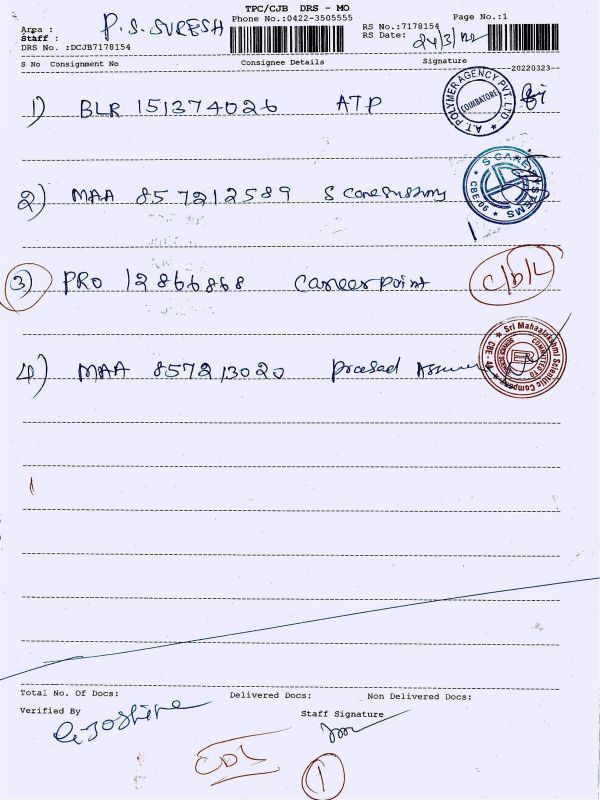 TPC/CJB DRS - MO
Phone No.:0422-3505555
Page No.:1
Area :
P.S. SURESH
Staff :
DRS No. :DCJB7178154
RS No.:7178154
RS Date: 24/3/22
S No Consignment No Consignee Details Signature
20220323--
1) BLR 151374026 ATP
A.T. POLYMER AGENCY PVT. LTD
COIMBATORE
2) MAA 857212589
S CARE SYSTEMS
CBE-06
3) PRO 12866868 Career point
4) MAA 857213020 Prasad
Sri Mahaalakshmi Scientific Company
Total No. Of Docs: Delivered Docs: Non Delivered Docs:
Verified By
Staff Signature
1